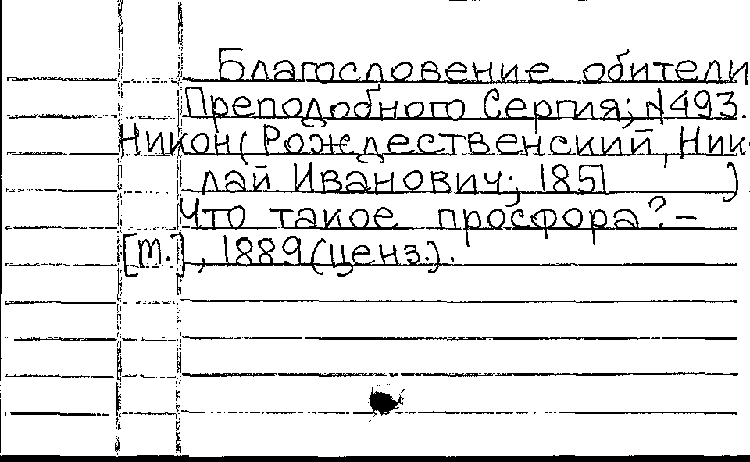 Благословение обители
Преподобного Сергия; N493.
Никон(Рождественский, Ник-
лай Иванович; 1851 )
Что такое просфора?-
[М.], 1889(ценз.).